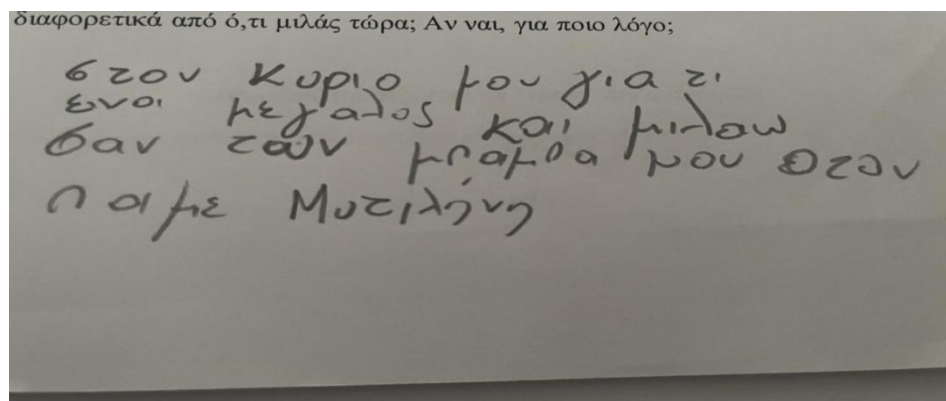 διαφορετικά από ό,τι μιλάς τώρα; Αν ναι, για ποιο λόγο;
στον κυριο μου για τι
ενοι μεγαλος και μιλαω
σαν τον μπαμπα μου οταν
παμε Μυτιλήνη